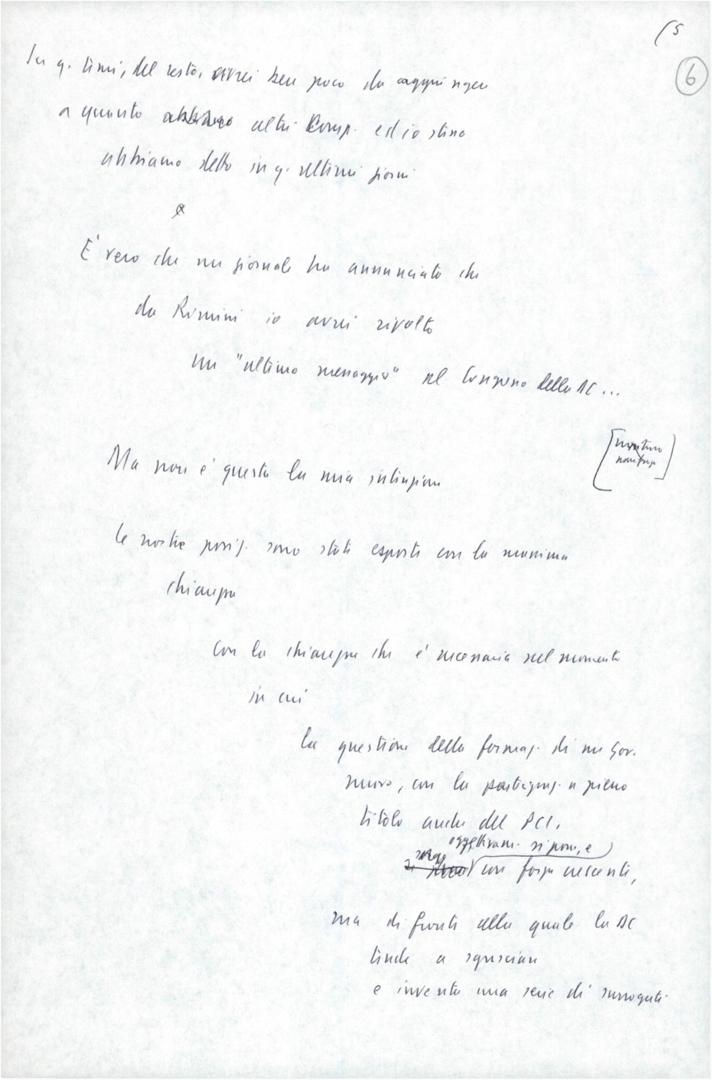 15
6
In q. temi, del resto, avrei ben poco da aggiungere
a quanto altri Comp. ed io stesso
abbiamo detto in q. ultimi giorni
E' vero che un giornale ha annunciato che
da Rimini io avrei rivolto
un "ultimo messaggio" al Congresso della DC...
Ma non è questa la mia intenzione
le nostre posiz. sono state esposte con la massima
chiarezza
con la chiarezza che è necessaria nel momento
in cui
la questione della formaz. di un Gov.
nuovo, con la partecipaz. a pieno
titolo anche del PCI,
oggettivam. si pone, e
con forza crescente,
ma di fronte alla quale la DC
tende a sgusciare
e inventa una serie di surrogati